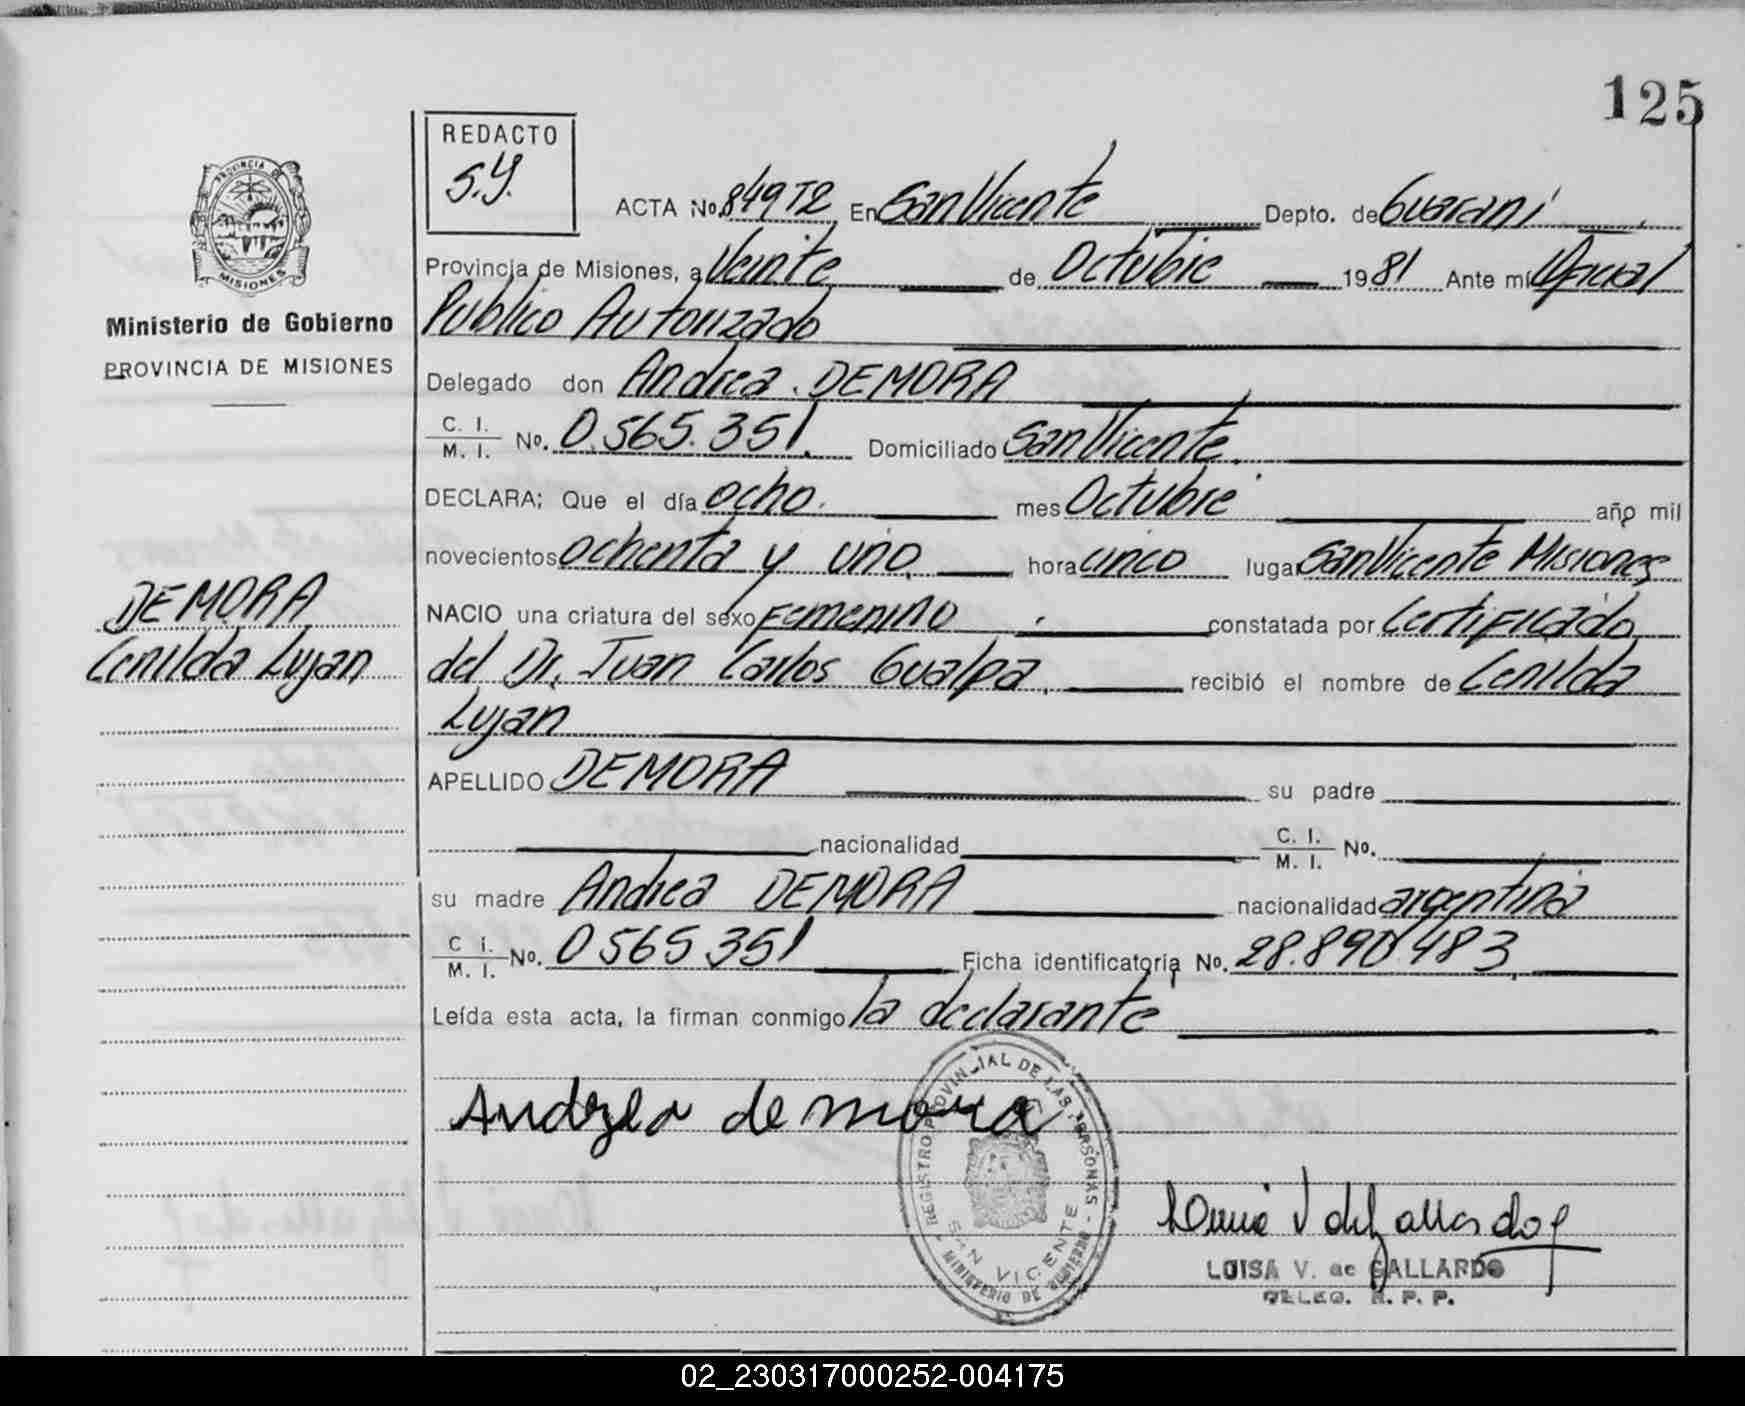 125
REDACTO
S.Y.
PROVINCIA DE
MISIONES
Ministerio de Gobierno
PROVINCIA DE MISIONES
ACTA No. 849 T2 En San Vicente Depto. de Guarani
Provincia de Misiones, a Veinte de Octubre 1981 Ante mí Oficial
Publico Autorizado
Delegado don Andrea DEMORA
C. I. / M. I. No. 0.565.351. Domiciliado San Vicente.
DECLARA; Que el día ocho. mes Octubre año mil
novecientos ochenta y uno hora cinco lugar San Vicente Misiones
DEMORA
Cenilda Lujan
NACIO una criatura del sexo Femenino constatada por Certificado
del Dr. Juan Carlos Gualpa. recibió el nombre de Cenilda
Lujan
APELLIDO DEMORA su padre
nacionalidad C. I. / M. I. No.
su madre Andrea DEMORA nacionalidad argentina
C i. / M. I. No. 0565351 Ficha identificatoria No. 28.890.483
Leída esta acta, la firman conmigo la declarante
Andrea de mora
REGISTRO PROVINCIAL DE LAS PERSONAS - MINISTERIO DE GOBIERNO
SAN VICENTE
LUISA V. de GALLARDO
DELEG. R. P. P.
02_230317000252-004175